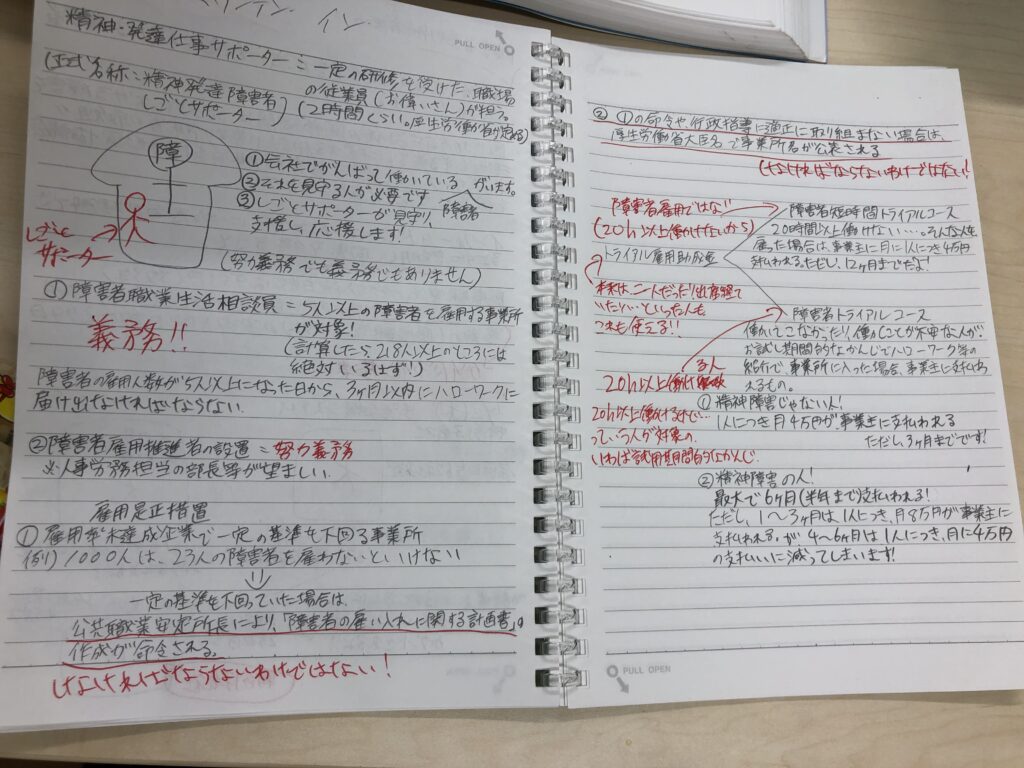 イン
PULL OPEN
精神・発達仕事サポーター：一定の研修を受けた、職場
の従業員(お偉いさん)が担う。
(正式名称：精神発達障害者
しごとサポーター)
(2時間くらい。厚生労働省が定める)
障
①会社でがんばって働いている
障害者
がいます。
②それを見守る人が必要です
③しごとサポーターが見守り、
支援し、応援します!
しごと
サポーター
(努力義務でも義務でもありません)
①障害者職業生活相談員=5人以上の障害者を雇用する事業所
が対象!
義務!!
(計算したら、218人以上のところには
絶対いるはず!)
障害者の雇用人数が5人以上になった日から、3ヶ月以内にハローワークに
届け出なければならない。
②障害者雇用推進者の設置=努力義務
※人事労務担当の部長等が望ましい。
雇用是正措置
①雇用率未達成企業で一定の基準を下回る事業所
例)1000人は、23人の障害者を雇わないといけない
⇓
一定の基準を下回っていた場合は、
公共職業安定所長により、「障害者の雇い入れに関する計画書」の
作成が命令される。
しなければならないわけではない!
②①の命令や行政指導に適正に取り組まない場合は、
厚生労働省大臣名で事業所名が公表される
(しなければならないわけではない!
障害者雇用ではない
(20h以上働けたいから)
トライアル雇用助成金
本来は、ニートだったり出産経て
いたい…といった人も
これも使える!!
障害者短時間トライアルコース
20時間以上働けない…。そんな人を
雇った場合は、事業主に月に1人につき4万円
支払われる。ただし、12ヶ月までだよ!
障害者トライアルコース
働いてこなかったり、働くことが不安な人が、
お試し期間的なかんじでハローワーク等の
紹介で、事業所に入った場合、事業主に支払わ
れるもの。
20h以上働ける人
20h以上働けるけど…
っていう人が対象の、
いわば試用期間的なかんじ。
①精神障害じゃない人!
1人につき月4万円が事業主に支払われる
ただし、3ヶ月までです!
②精神障害の人!
最大で6ヶ月(半年まで支払われる!
ただし、1〜3ヶ月は1人につき、月8万円が事業主に
支払われる。が4〜6ヶ月は1人につき、月に4万円
の支払いいに減ってしまいます!
PULL OPEN